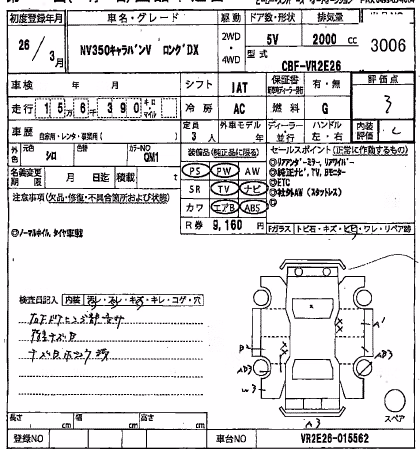 初度登録年月 車名・グレード 駆動 ドア数・形状 排気量
26 / 3月 NV350キャラバンV ロングDX 2WD・4WD 5V 2000 cc 3006
型式 CBF-VR2E26
車検 年 月 シフト IAT 保証書 有・無 評価点 3
走行 15万6千390キロ・マイル 冷房 AC 燃料 G
車歴 自家用・レンタ・事業用( ) 定員 3人 外車モデル 年 ディーラー・並行 ハンドル 左・右 内装評価 C
外色 元色 シロ 色 カラーNO QM1
名義変更期限 月 日迄 積載 t
装備品(純正品に限る)
PS PW AW
SR TV ナビ
カワ エアB ABS
R券 9,160 円
セールスポイント(正常に作動するもの)
◎リアアンダーミラー、リアワイパー
◎純正ナビ、TV、Bモニター
◎ETC
◎社外AW(スタッドレス)
◎
注意事項(欠品・修復・不具合箇所および状態)
◎ノーマルホイル、タイヤ車載
Fガラス トビ石・キズ・ヒビ・ワレ・リペア跡
検査員記入 内装 汚レ・スレ・キズ・キレ・コゲ・穴
A1
B2
AD3
AD3
W3
A3
スペア
長さ cm 幅 cm 高さ cm
登録NO 車台NO VR2E26-015562